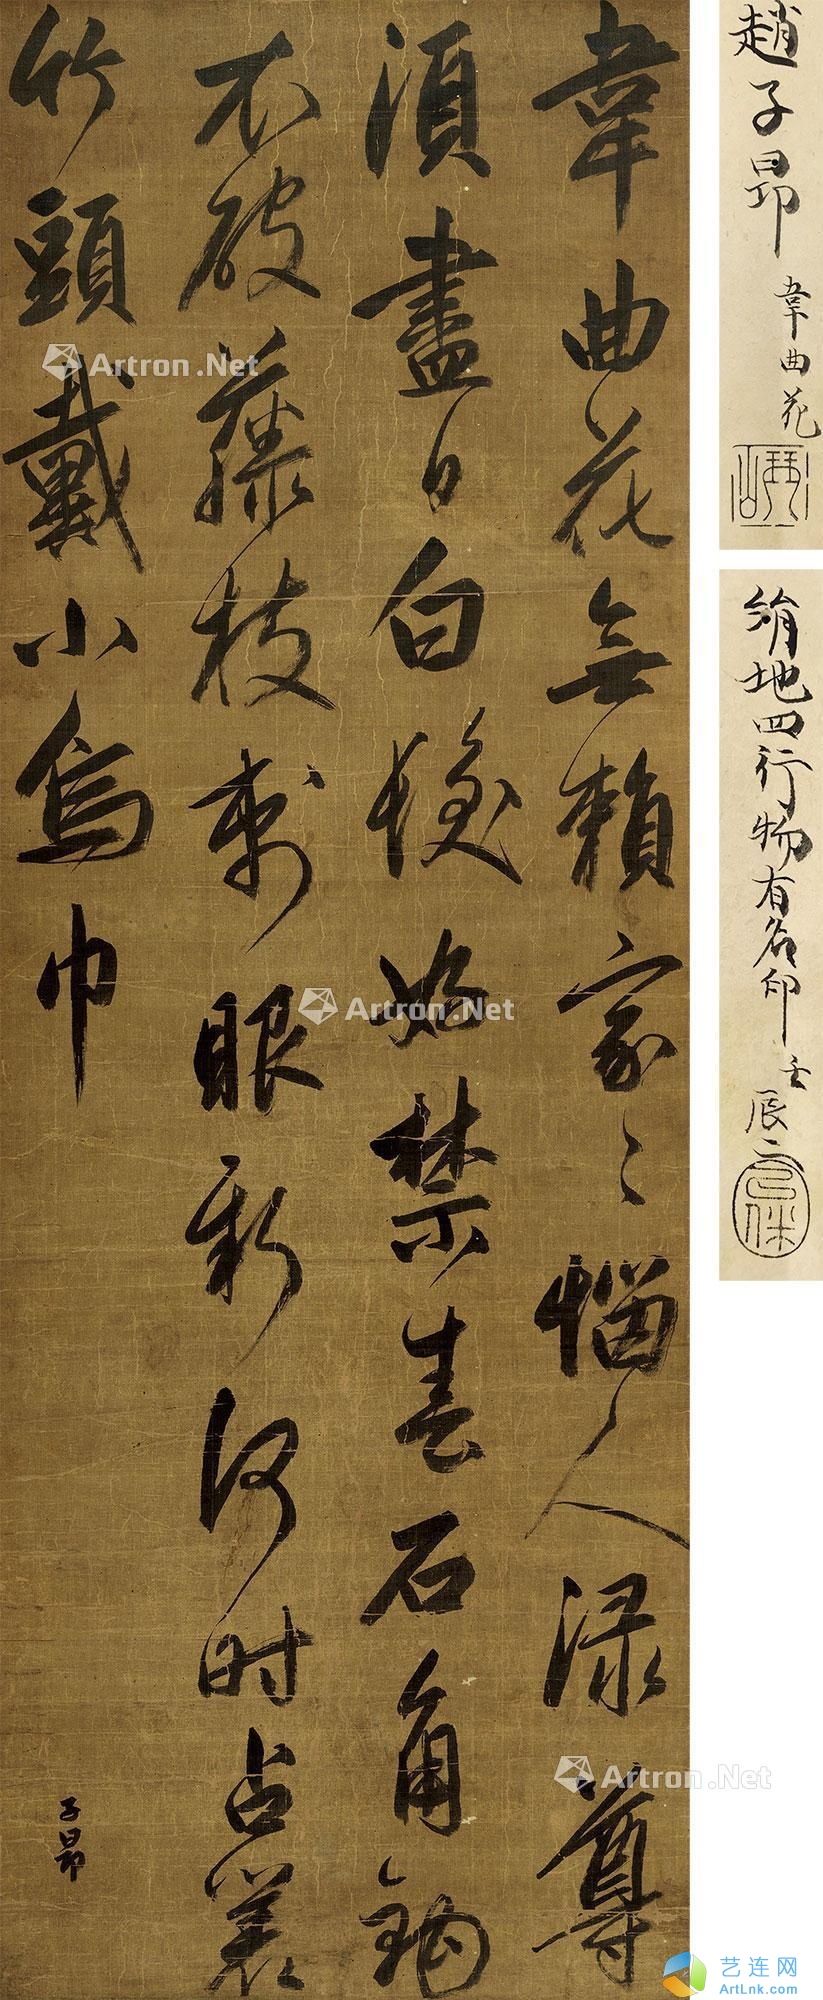 趙子昂 韋曲花
琴山
絹地四行物有名印 壬辰二
韋曲花無賴家〻惱人淥尊
須盡日白髮好禁春石角鈎
衣破藤枝刺眼新何时占叢
竹頭戴小烏巾
子昂
Artron.Net
Artron.Net
Artron.Net
艺连网
ArtLnk.com